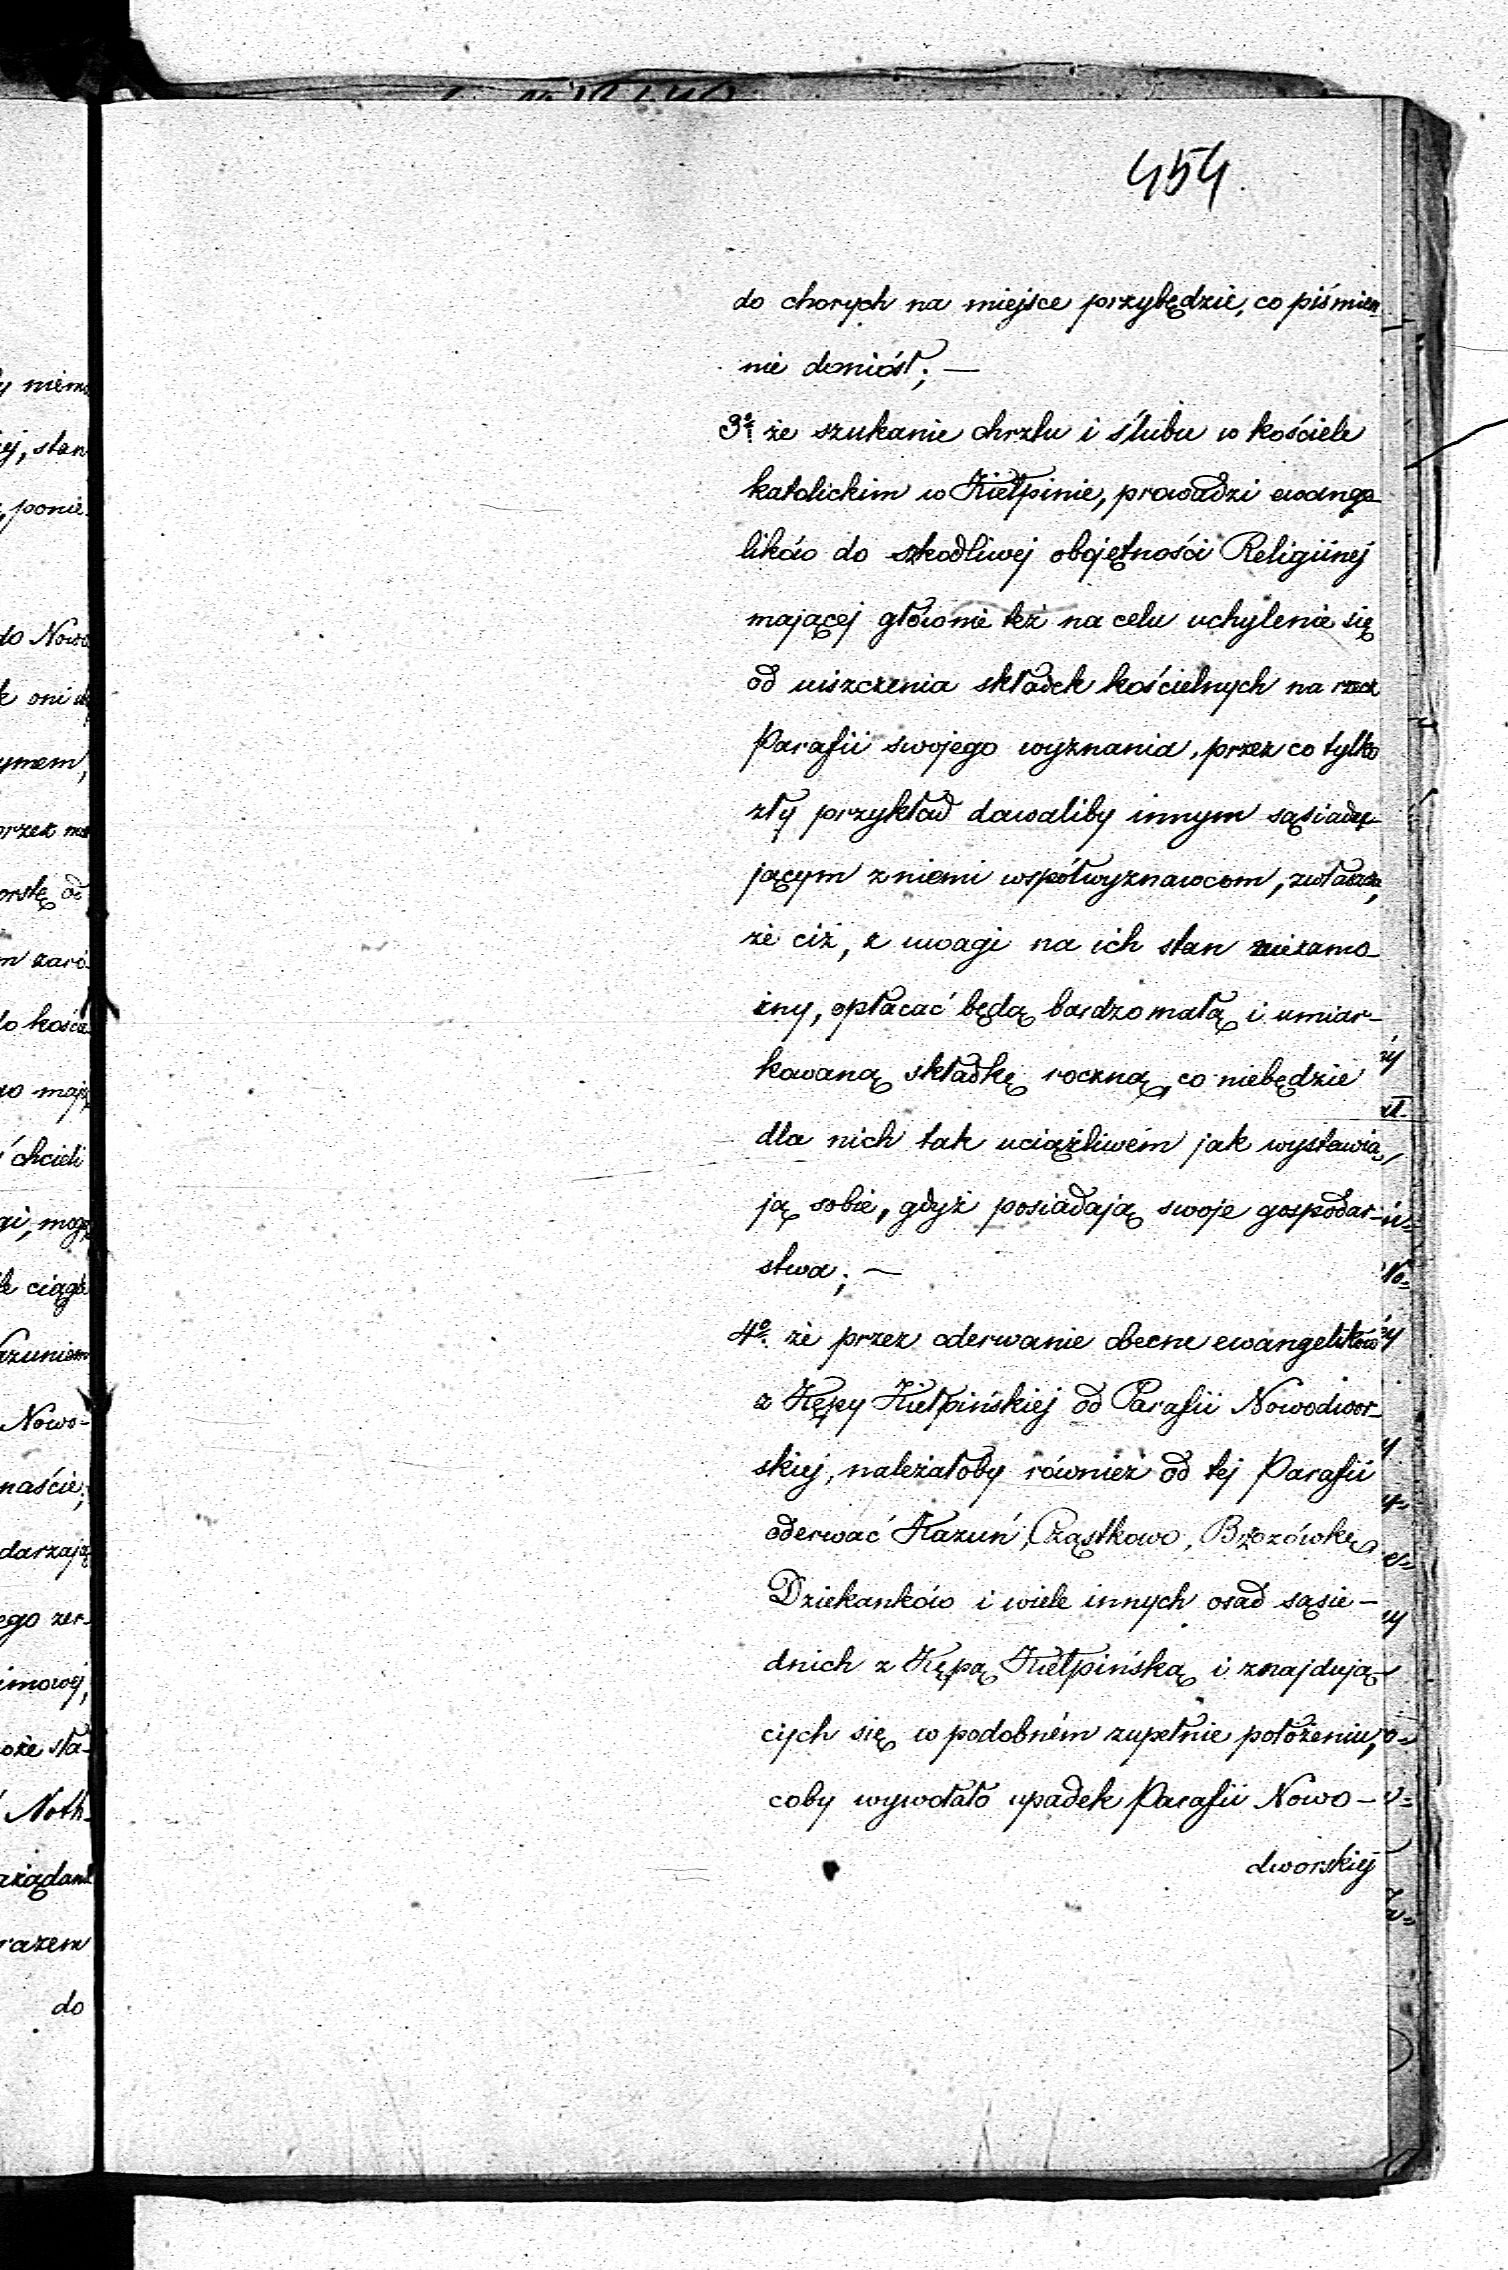 454.
do chorych na miejsce przybędzie, co piśmien
nie doniósł; —
3º że szukanie chrztu i ślubu w kościele
katolickim w Kiełpinie, prowadzi ewange-
lików do szkodliwej obojętności Religiinéj
mającej głównie też na celu uchylenie się
od uiszczenia składek kościelnych na rzecz
Parafii swojego wyznania, przez co tylko
zły przykład dawaliby innym sąsiadu-
jącym z niemi współwyznawcom, zwłaszcza,
że ciż, z uwagi na ich stan niezamo-
żny, opłacać będą bardzo małą i umiar-
kowaną składkę roczną, co niebędzie
dla nich tak uciążliwém jak wystawia
ją sobie, gdyż posiadają swoje gospodar-
stwa; —
4º że przez oderwanie obecne ewangelików
z Kępy Kiełpińskiéj od Parafii Nowodwor-
skiej, należałoby również od tej Parafii
oderwać Kazuń, Cząstkowo, Brzozówkę
Dziekanków i wiele innych osad sąsie-
dnich z Kępą Kiełpińską i znajdują-
cych się w podobném zupełnie położeniu,
coby wywołało upadek Parafii Nowo-
dworskiéj